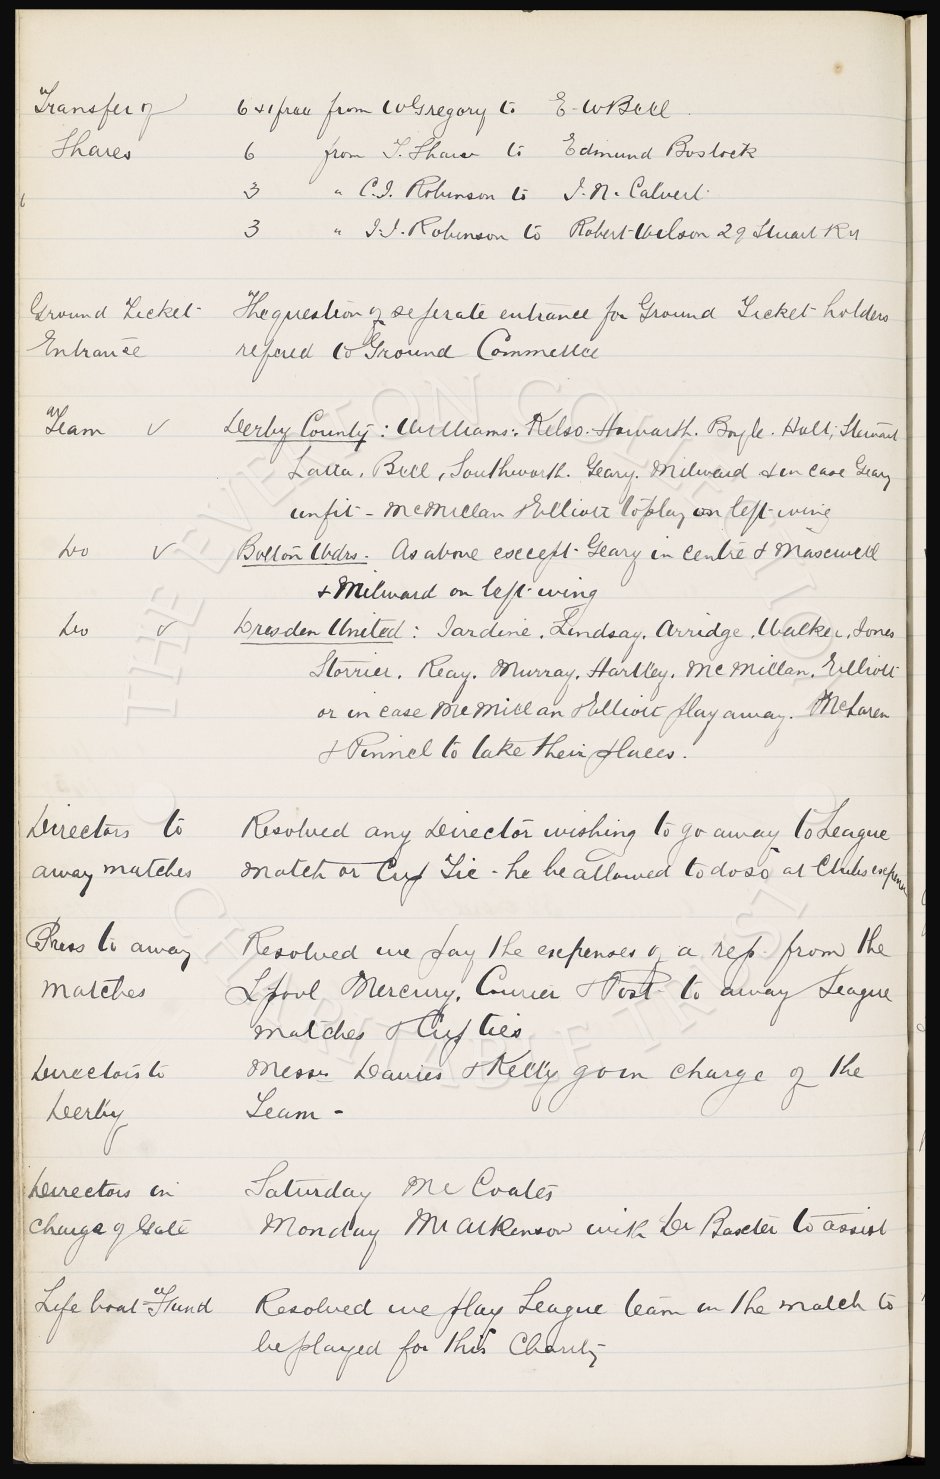 Transfer of 6 & 1 free from W Gregory to E. W Bell.
Shares 6 from T. Shaw to Edmund Bostock
3 " C.I. Robinson to J. N. Calvert
3 " J.J. Robinson to Robert Wilson 29 Stuart Rd
Ground Ticket The question of seperate entrance for Ground Ticket holders
Entrance refered to Ground Committee
Team ✓ Derby County: Williams. Kelso. Howarth. Boyle. Holt, Stewart
Latta, Bell, Southworth. Geary. Milward & in case Geary
unfit - McMillan & Elliott to play on left wing
Do ✓ Bolton Wdrs. As above except Geary in centre & Maxwell
& Milward on left wing
Do ✓ Dresden United: Jardine, Lindsay, Arridge, Walker, Jones
Storrier, Reay, Murray, Hartley, McMillan, Elliott
or in case McMillan & Elliott play away. McLaren
& Pinnel to take their places.
Directors to Resolved any Director wishing to go away to League
away matches match or Cup Tie - he be allowed to do so at Clubs expense
Press to away Resolved we pay the expenses of a rep. from the
matches Lpool Mercury, Courier & Post to away League
matches & Cup ties
Directors to Messrs Davies & Kelly go in charge of the
Derby Team -
Directors in Saturday Mr Coates
charge of Gate Monday Mr Atkinson with Dr Baxter to assist
Life boat Fund Resolved we play League team in the match to
be played for this Charity
THE EVERTON COLLECTION
CHARITABLE TRUST